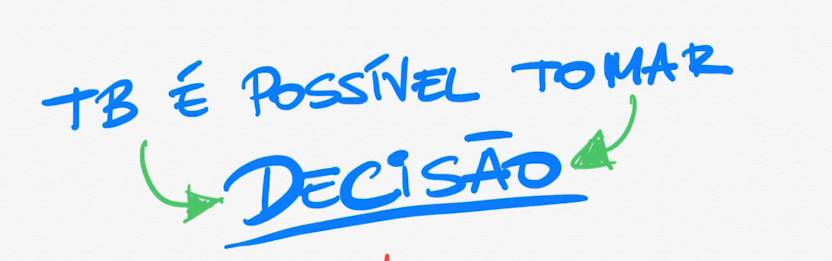 TB É POSSÍVEL TOMAR
DECISÃO